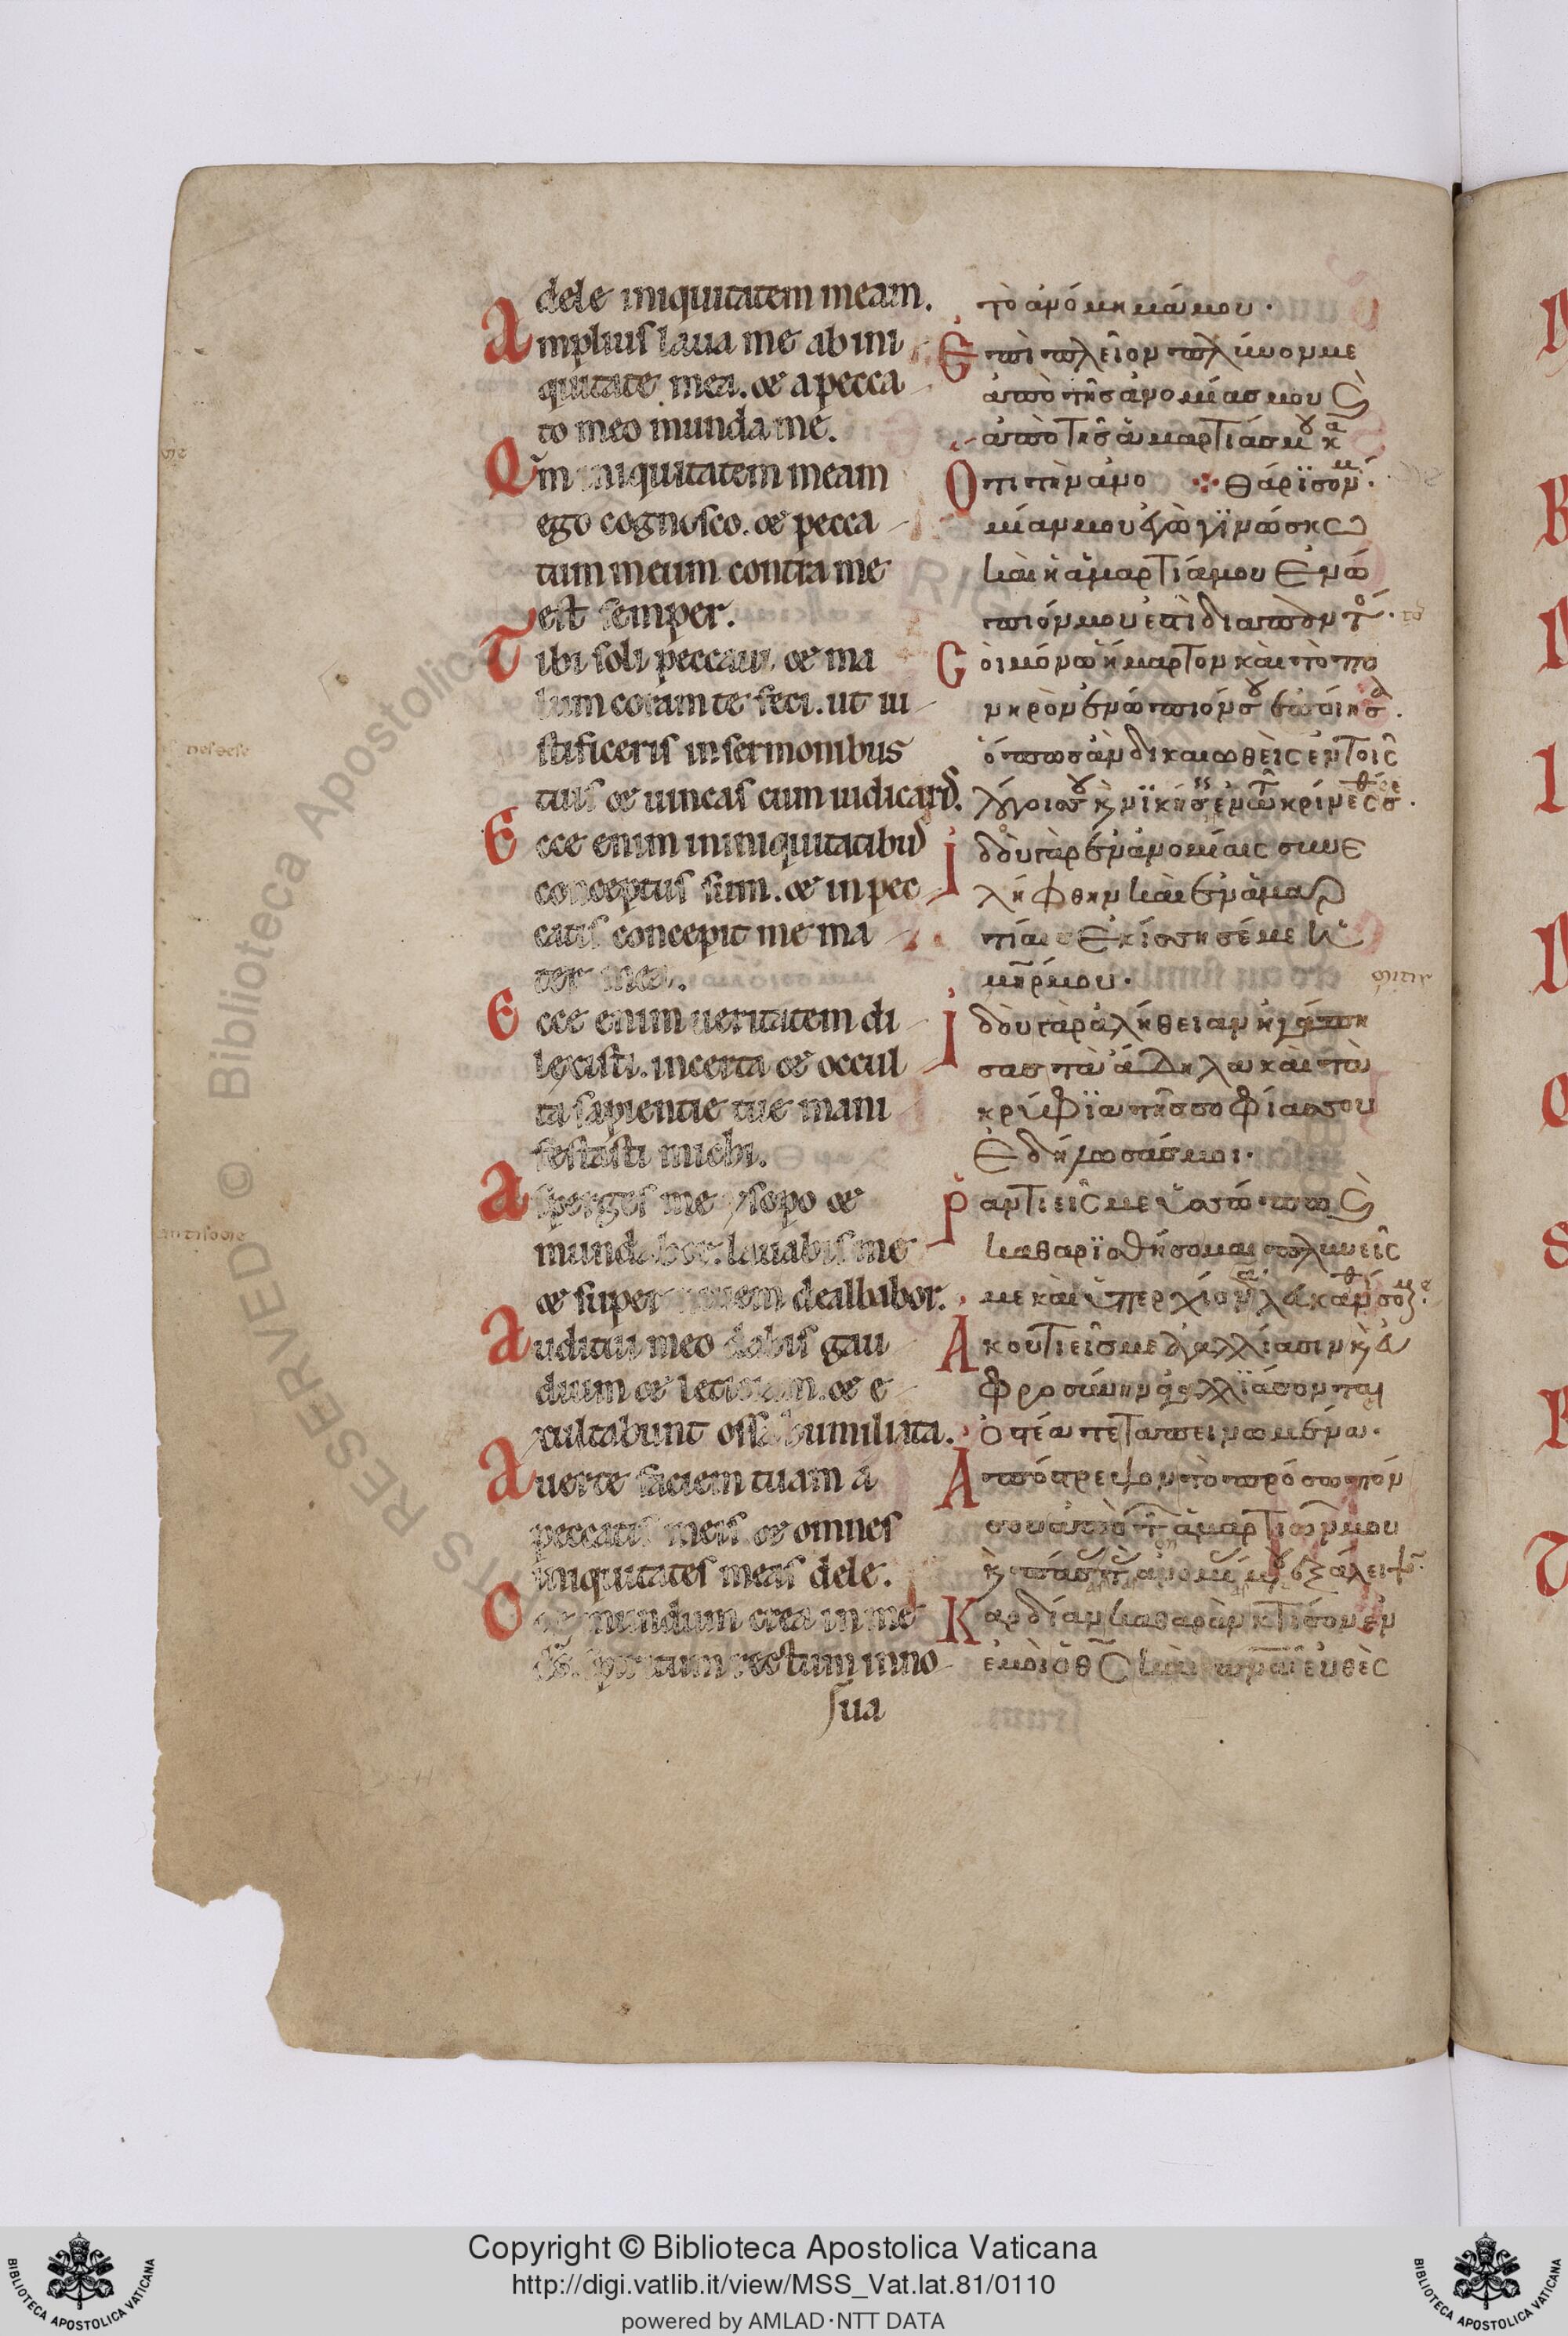 dele iniquitatem meam.
Amplius laua me ab ini
quitate mea. & a pecca
to meo munda me.
Qm iniquitatem meam
ego cognosco. & pecca
tum meum contra me
est semper.
Tibi soli peccaui, & ma
lum coram te feci. ut iu
stificeris in sermonibus
tuis & uincas cum iudicaris.
Ecce enim in iniquitatibus
conceptus sum. & in pec
catis concepit me ma
ter mea.
Ecce enim ueritatem di
lexisti. incerta & occul
ta sapientie tue mani
festasti michi.
Asperges me ysopo &
mundabor. lauabis me
& super niuem dealbabor.
Auditui meo dabis gau
dium & letitiam. & e
xultabunt ossa humiliata.
Auerte faciem tuam a
peccatis meis & omnes
iniquitates meas dele.
Cor mundum crea in me
ds. & spiritum rectum inno
sua
τὸ ἀνόμημάμου.
Ἐπὶ πλεῖον πλύνον με
ἀπὸ τῆς ἀνομίας μου ϛ
ἀπὸ τῆς ἁμαρτίας μου κα
Ὅτι τὴν ἀνο ⁘ θάρϊσομ.
μίαν μου ἐγὼ γϊνώσκω
καὶ ἡ ἁμαρτία μου ἐνώ
πιόν μου ἐστὶ διαπαντός.
Σοὶ μόνω ἥμαρτον καὶ τὸ πο
νηρὸν ἐνώπιόν σου ἐποίησα.
ὅπως ἂν δικαιωθεὶς ἐν τοῖς
λόγοις σου κ νϊκήσης ἐν τῶ κρίνεσθέ σε.
Ἰδοὺ γὰρ ἐν ἀνομίαις συνε
λήφθην καὶ ἐν ἁμαρ
τίαις ἐκίσσησέ με ἡ
μηρ μου.
Ἰδοὺ γὰρ ἀλήθειαν ἠγάπη
σας τὰ ἄδηλα καὶ τὰ
κρύφϊα τῆς σοφίας σου
ἐδήλωσάς μοι.
Ῥαντιεῖς με ὑσώπω ϛ
καθαρϊσθήσομαι πλυνεῖς
με καὶ ὑπερ χιόνα λευκανθήσομε.
Ἀκουτιεῖς με ἀγαλλίασιν κ εὐ
φροσύνην ἀγαλλϊάσονται
ὀστέα τεταπεινωμένα.
Ἀπόστρεψον τὸ πρόσωπόν
σου ἀπὸ τῶν ἁμαρτιῶν μου
κ πάσας τὰς ἀνομίας μου ἐξάλειψον.
Καρδίαν καθαρὰν κτίσον ἐν
ἐμοὶ ὁ θς καὶ πνα εὐθὲς
Copyright © Biblioteca Apostolica Vaticana
http://digi.vatlib.it/view/MSS_Vat.lat.81/0110
powered by AMLAD·NTT DATA